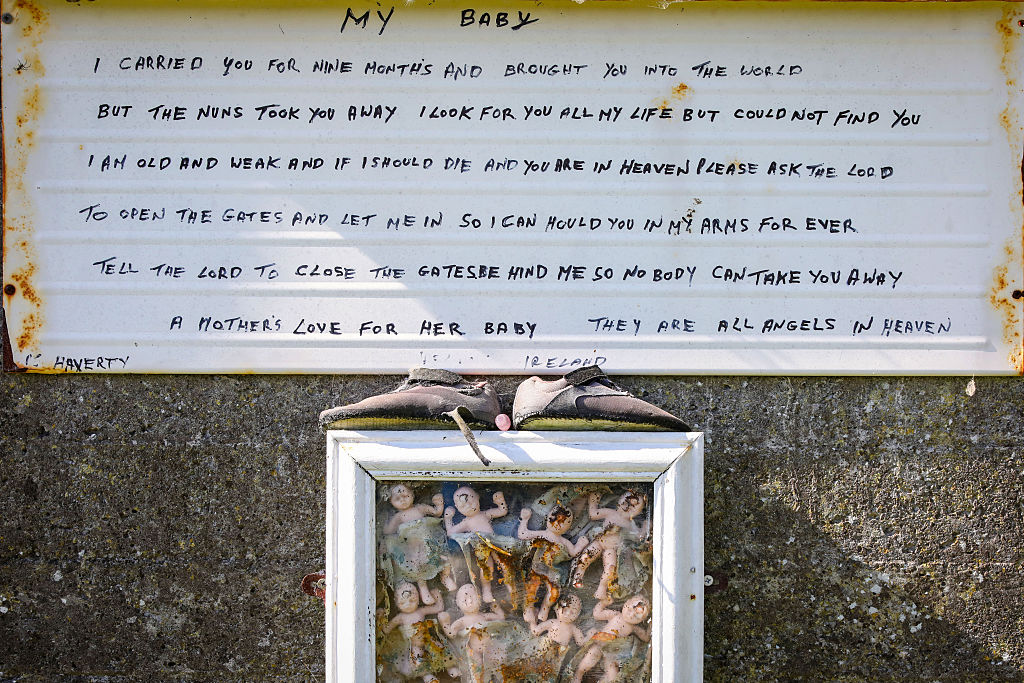 MY BABY
I CARRIED YOU FOR NINE MONTH'S AND BROUGHT YOU INTO THE WORLD
BUT THE NUNS TOOK YOU AWAY I LOOK FOR YOU ALL MY LIFE BUT COULD NOT FIND YOU
I AM OLD AND WEAK AND IF I SHOULD DIE AND YOU ARE IN HEAVEN PLEASE ASK THE LORD
TO OPEN THE GATES AND LET ME IN SO I CAN HOULD YOU IN MY ARMS FOR EVER
TELL THE LORD TO CLOSE THE GATES BE HIND ME SO NO BODY CAN TAKE YOU AWAY
A MOTHER'S LOVE FOR HER BABY THEY ARE ALL ANGELS IN HEAVEN
HAVERTY IRELAND